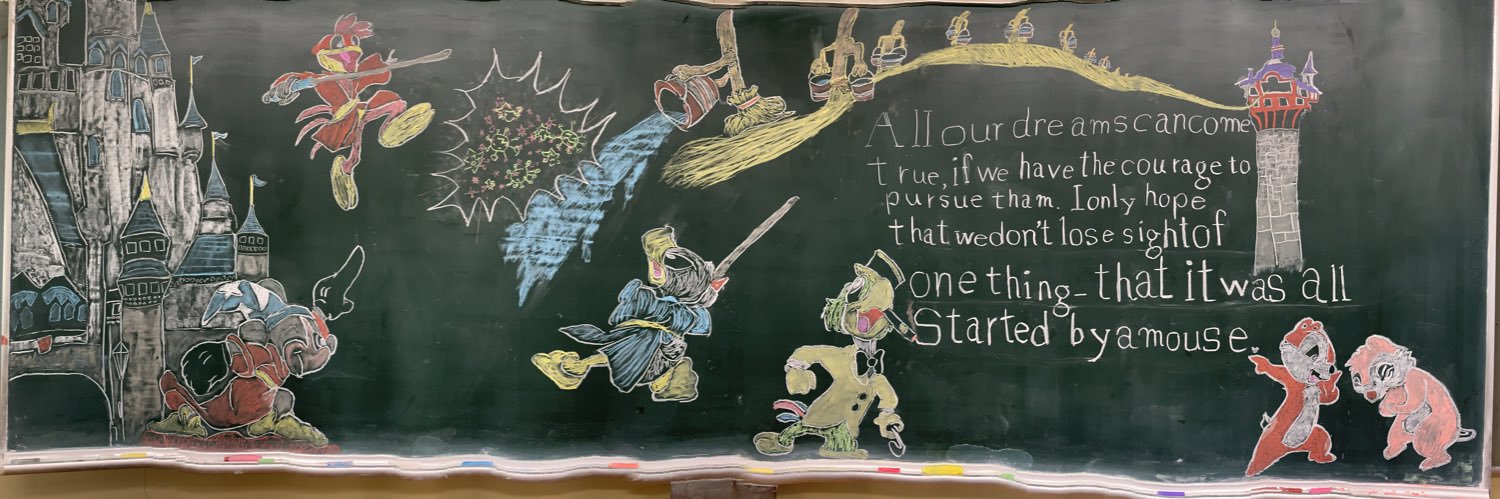 All our dreams can come
true, if we have the courage to
pursue tham. I only hope
that we don't lose sight of
one thing - that it was all
Started by a mouse.